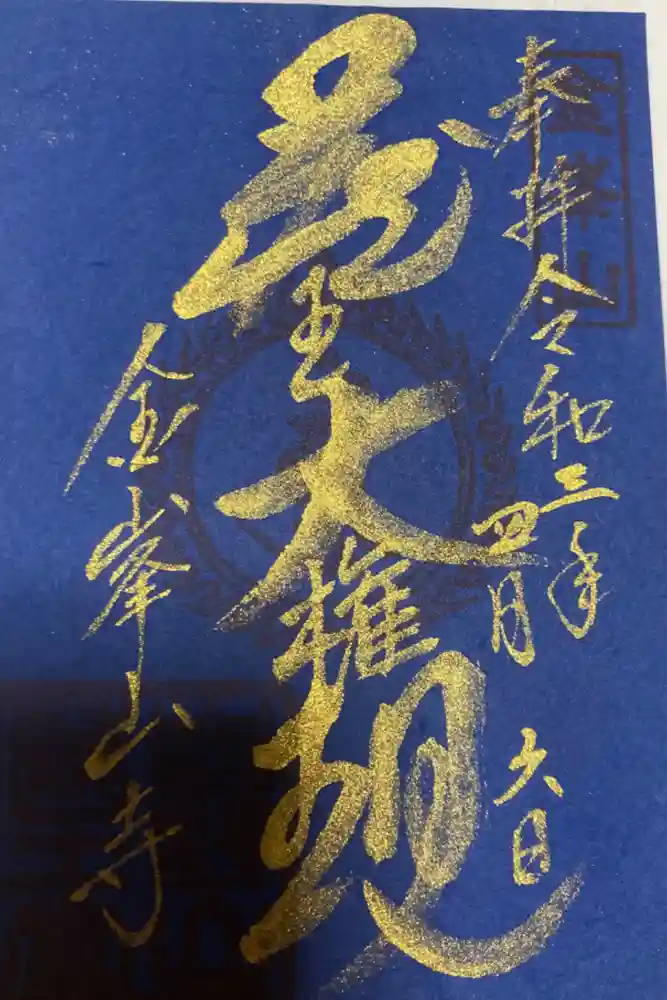 奉拝 令和三年
四月 六日
蔵王大権現
金峯山寺
金峯山